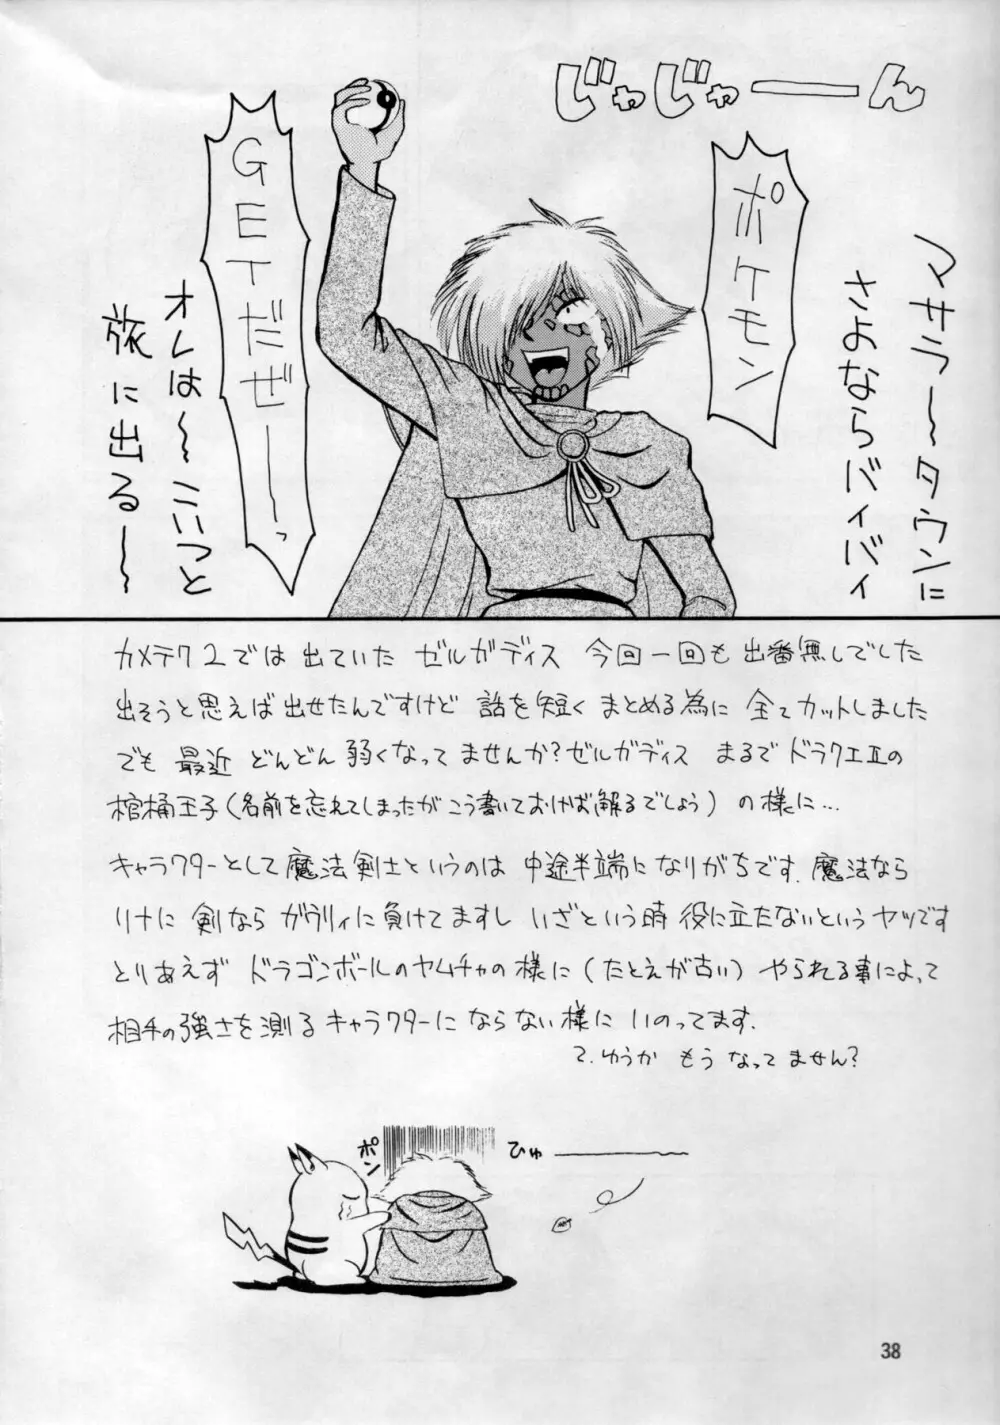 じゃじゃーん
ポケモン
GETだぜーーっ
マサラ〜タウンに
さよならバイバイ
オレは〜こいつと
旅に出る〜
カメテク2では出ていたゼルガディス 今回一回も出番無しでした
出そうと思えば出せたんですけど 話を短くまとめる為に全てカットしました
でも最近どんどん弱くなってませんか?ゼルガディス まるでドラクエIIの
棺桶王子(名前を忘れてしまったがこう書いておけば解るでしょう)の様に…
キャラクターとして魔法剣士というのは中途半端になりがちです.魔法なら
リナに剣ならガウリィに負けてますし いざという時役に立たないというヤツです
とりあえずドラゴンボールのヤムチャの様に(たとえが古い)やられる事によって
相手の強さを測るキャラクターにならない様にいのってます.
て.ゆうか もうなってません?
ポン
ひゅーー
38